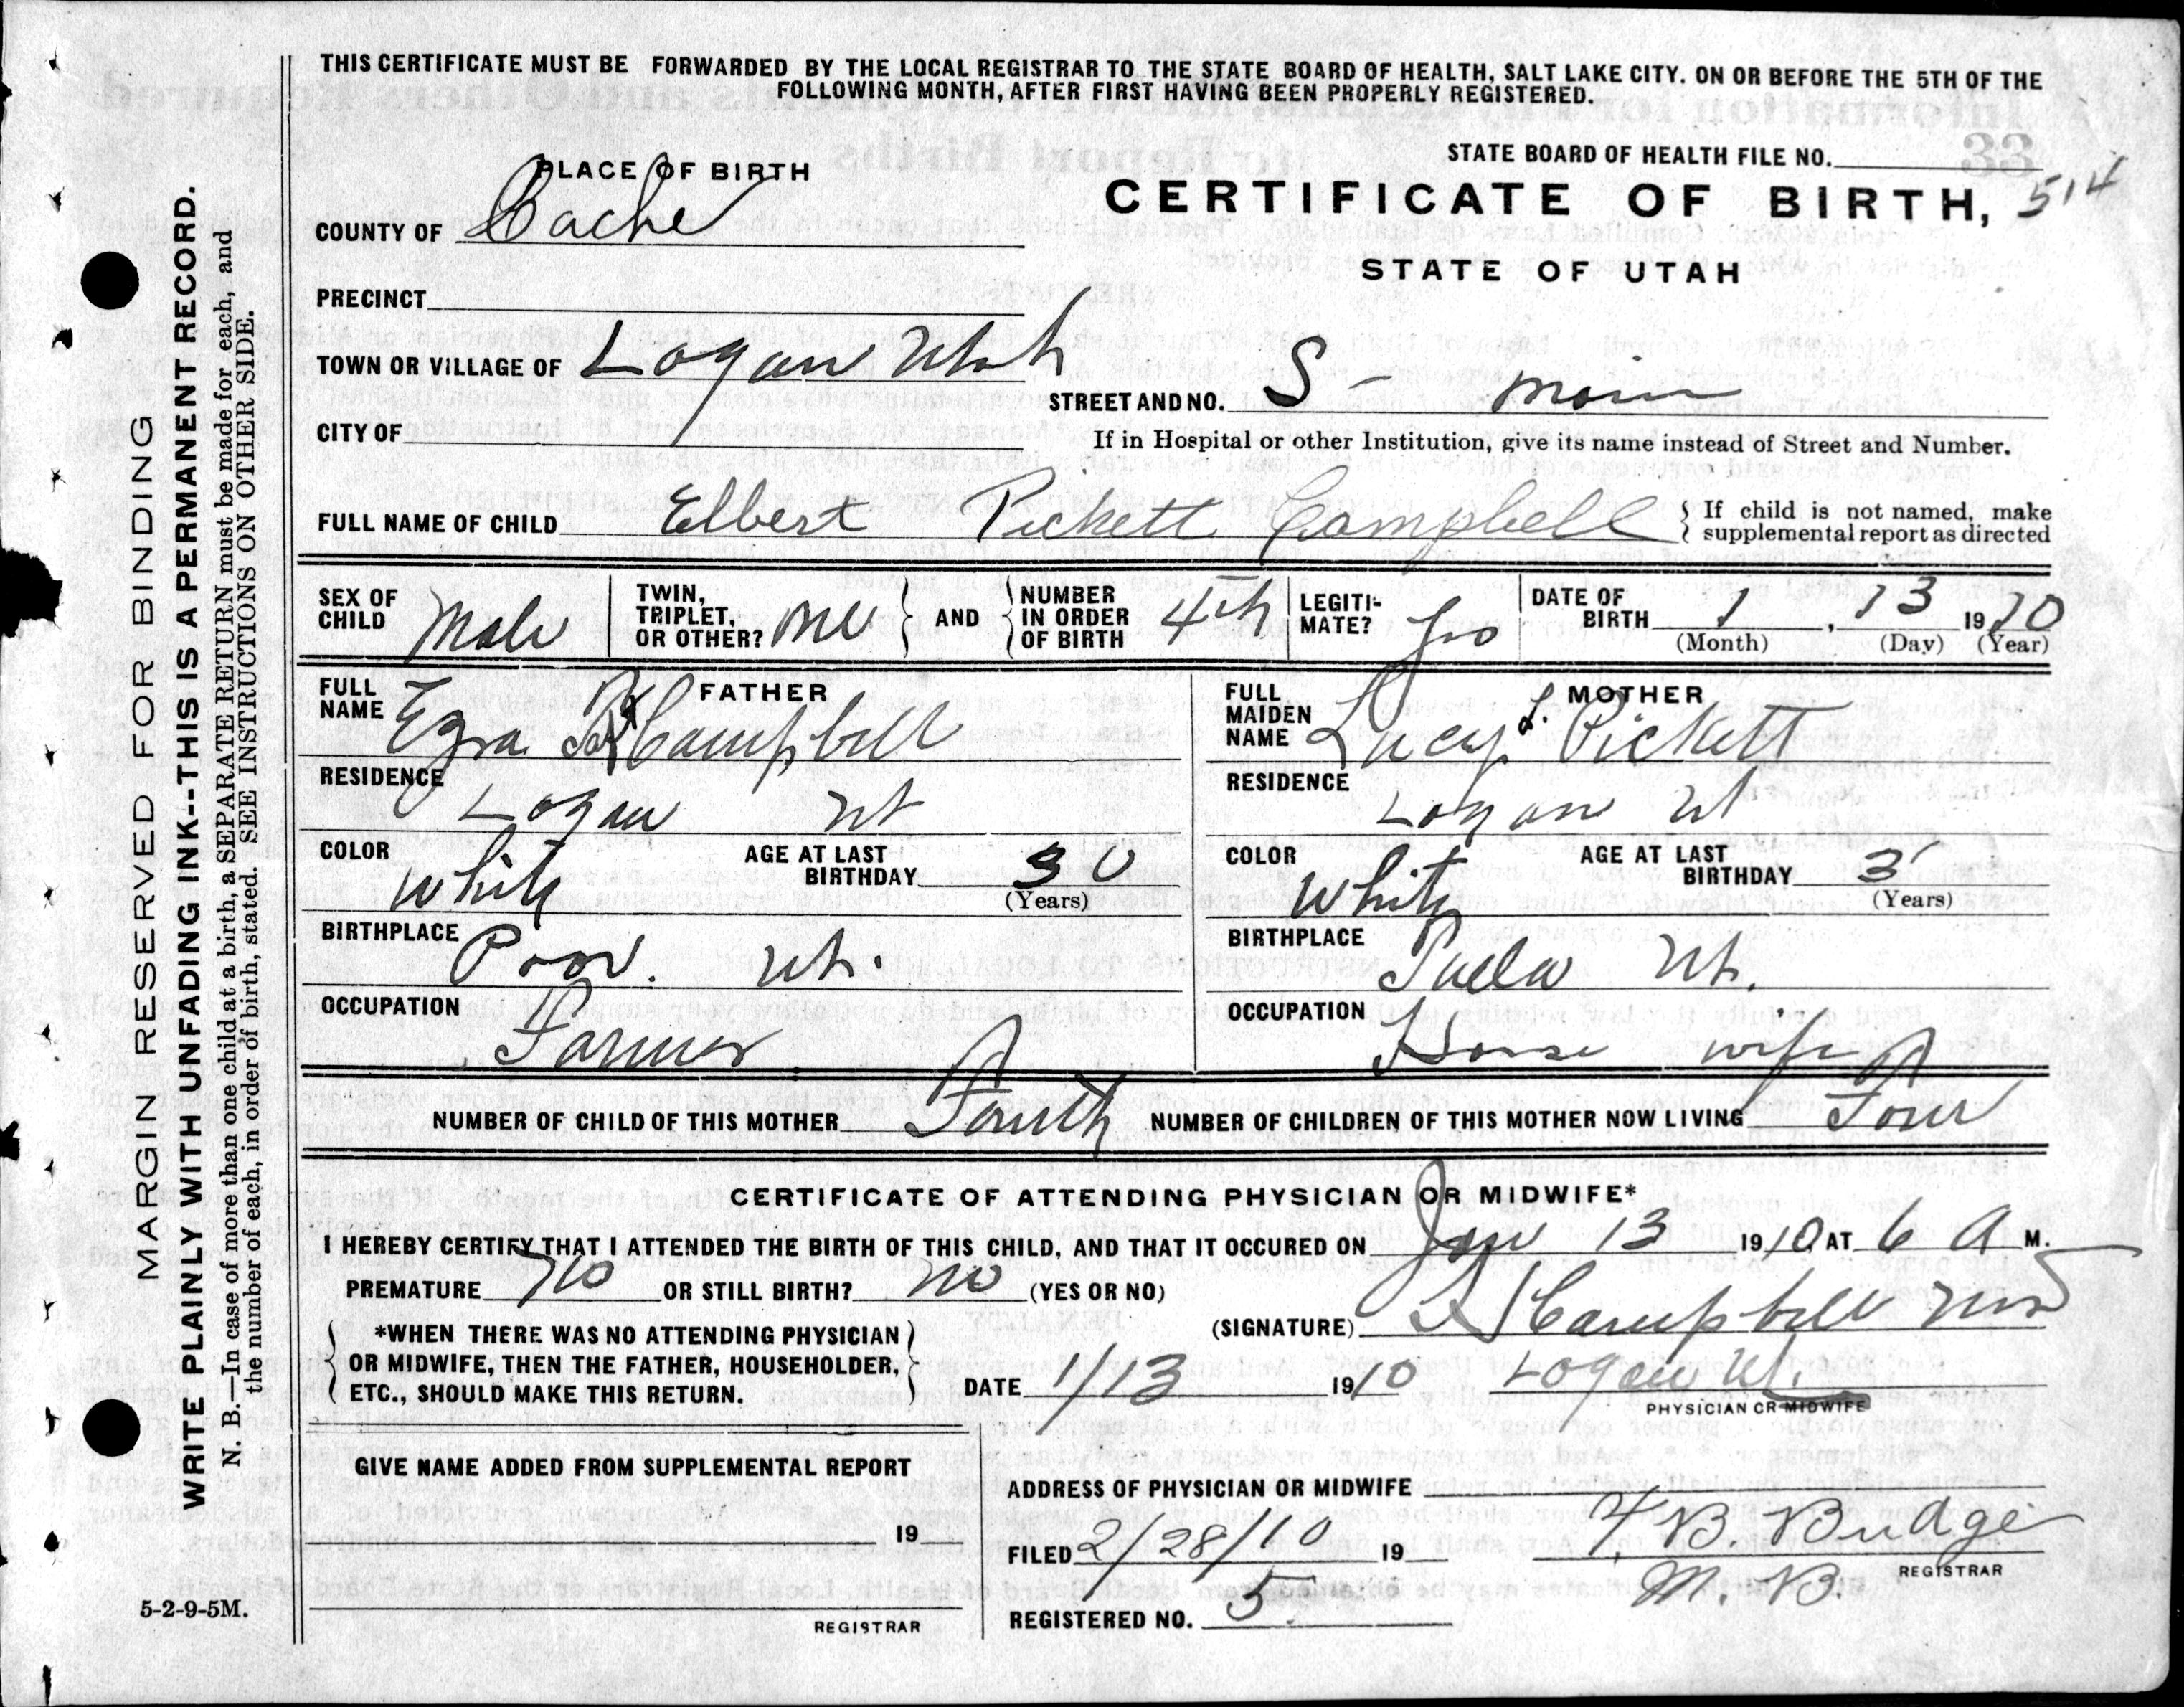 THIS CERTIFICATE MUST BE FORWARDED BY THE LOCAL REGISTRAR TO THE STATE BOARD OF HEALTH, SALT LAKE CITY. ON OR BEFORE THE 5TH OF THE
FOLLOWING MONTH, AFTER FIRST HAVING BEEN PROPERLY REGISTERED.
STATE BOARD OF HEALTH FILE NO.
33
PLACE OF BIRTH
CERTIFICATE OF BIRTH, 514
STATE OF UTAH
COUNTY OF Cache
PRECINCT
TOWN OR VILLAGE OF Logan Utah
STREET AND NO. S - Main
CITY OF
If in Hospital or other Institution, give its name instead of Street and Number.
FULL NAME OF CHILD Elbert Pickett Campbell
If child is not named, make
supplemental report as directed
SEX OF CHILD Male
TWIN, TRIPLET, OR OTHER? one AND NUMBER IN ORDER OF BIRTH 4th
LEGITI-MATE?
DATE OF BIRTH 1, 13 1910
(Month) (Day) (Year)
FATHER
FULL NAME Ezra Campbell
RESIDENCE Logan Ut
COLOR White
AGE AT LAST BIRTHDAY 30
(Years)
BIRTHPLACE Prov. Ut.
OCCUPATION Farmer
MOTHER
FULL MAIDEN NAME Lucy L. Pickett
RESIDENCE Logan Ut
COLOR White
AGE AT LAST BIRTHDAY 3
(Years)
BIRTHPLACE Ut.
OCCUPATION House wife
NUMBER OF CHILD OF THIS MOTHER Fourth NUMBER OF CHILDREN OF THIS MOTHER NOW LIVING Four
CERTIFICATE OF ATTENDING PHYSICIAN OR MIDWIFE*
I HEREBY CERTIFY THAT I ATTENDED THE BIRTH OF THIS CHILD, AND THAT IT OCCURED ON Jan 13 1910 AT 6 A M.
PREMATURE No OR STILL BIRTH? no (YES OR NO)
*WHEN THERE WAS NO ATTENDING PHYSICIAN
OR MIDWIFE, THEN THE FATHER, HOUSEHOLDER,
ETC., SHOULD MAKE THIS RETURN.
(SIGNATURE) Campbell
DATE 1/13 1910 Logan Ut.
PHYSICIAN OR MIDWIFE
GIVE NAME ADDED FROM SUPPLEMENTAL REPORT
19
REGISTRAR
ADDRESS OF PHYSICIAN OR MIDWIFE
FILED 2/28/10 19
B. Budge
REGISTRAR
M. B.
REGISTERED NO. 5.
5-2-9-5M.
MARGIN RESERVED FOR BINDING
WRITE PLAINLY WITH UNFADING INK--THIS IS A PERMANENT RECORD.
N. B.—In case of more than one child at a birth, a SEPARATE RETURN must be made for each, and
the number of each, in order of birth, stated. SEE INSTRUCTIONS ON OTHER SIDE.